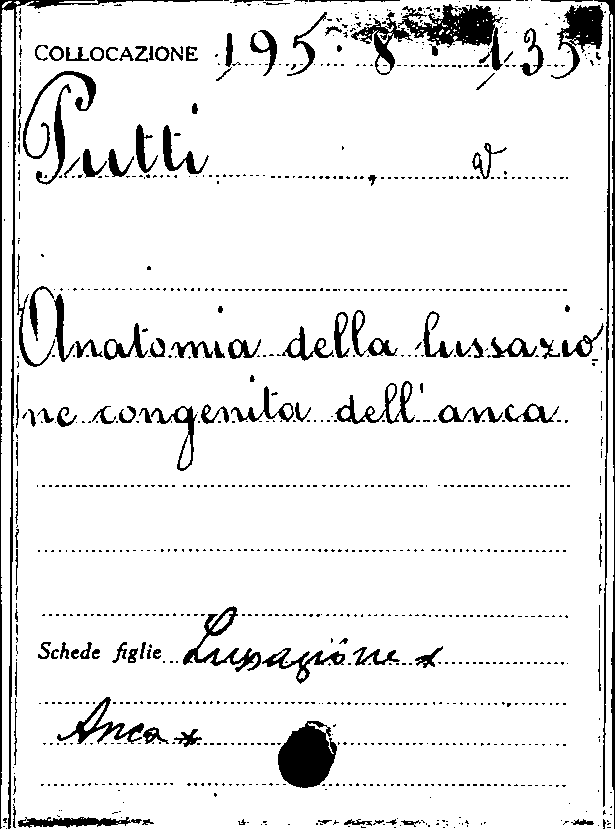 COLLOCAZIONE 195. 8. 135.
Putti , v.
Anatomia della lussazio
ne congenita dell'anca
Schede figlie Lussazione *
Anca *